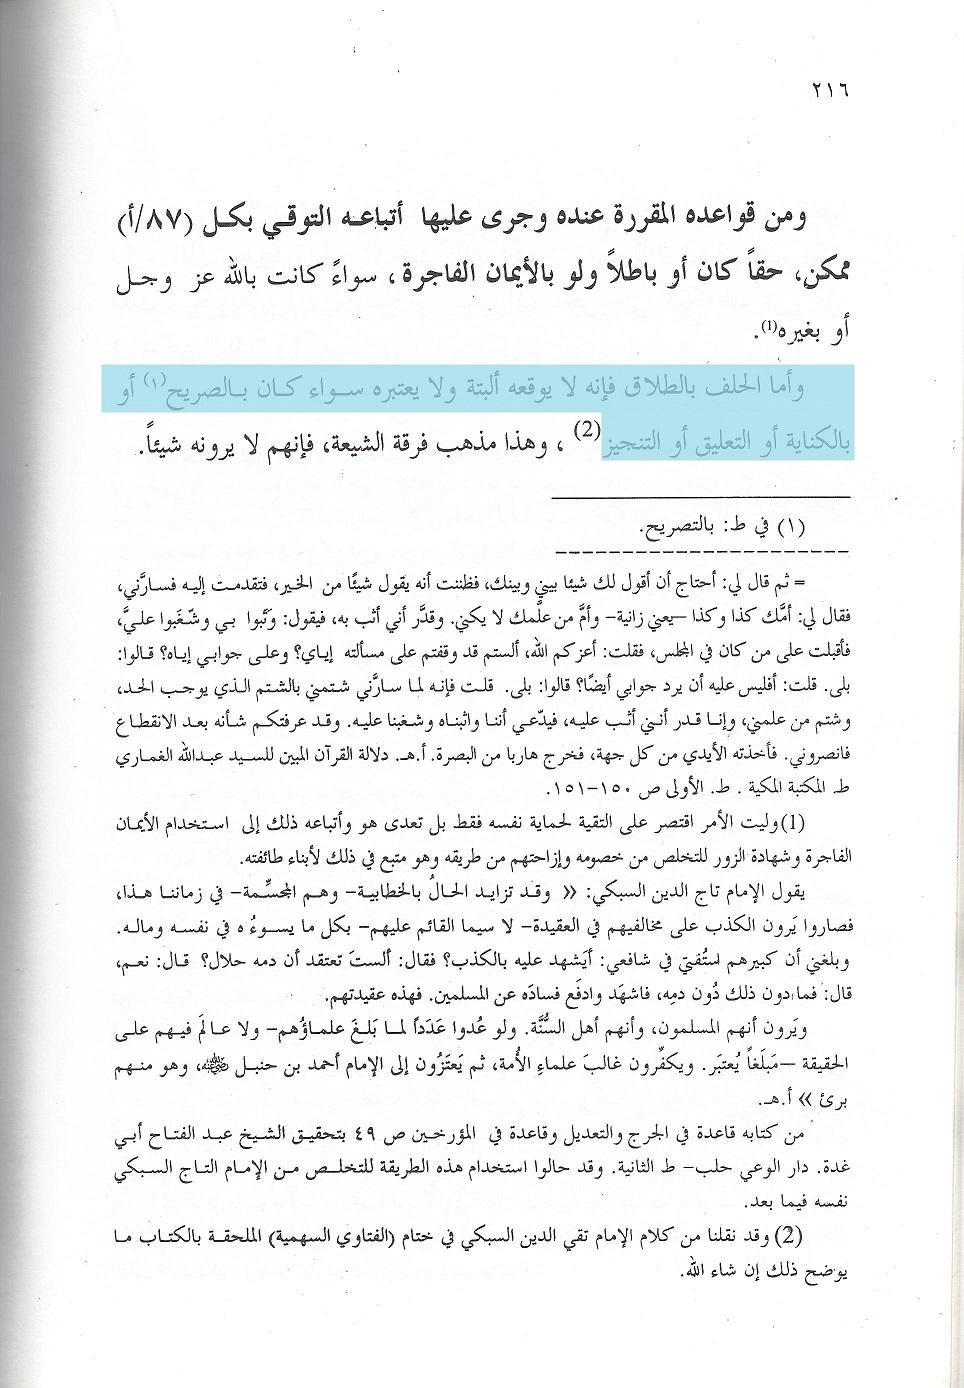 ٢١٦
ومن قواعده المقررة عنده وجرى عليها أتباعه التوقي بكل (٨٧/أ)
ممكن، حقاً كان أو باطلاً ولو بالأيمان الفاجرة، سواءً كانت بالله عز وجل
أو بغيره(1).
وأما الحلف بالطلاق فإنه لا يوقعه ألبتة ولا يعتبره سواء كان بالصريح(١) أو
بالكناية أو التعليق أو التنجيز(2) ، وهذا مذهب فرقة الشيعة، فإنهم لا يرونه شيئاً.
(١) في ط: بالتصريح.
= ثم قال لي: أحتاج أن أقول لك شيئا بيني وبينك، فظننت أنه يقول شيئًا من الخير، فتقدمت إليه فسارَّني،
فقال لي: أمَّك كذا وكذا –يعني زانية– وأمَّ من علَّمك لا يكني. وقدَّر أني أثب به، فيقول: وَثبوا بي وشغَّبوا عليَّ،
فأقبلت على من كان في المجلس، فقلت: أعزكم الله، ألستم قد وقفتم على مسألته إياي؟ وعلى جوابي إياه؟ قالوا:
بلى. قلت: أفليس عليه أن يرد جوابي أيضًا؟ قالوا: بلى. قلت فإنه لما سارَّني شتمني بالشتم الذي يوجب الحد،
وشتم من علمني، وإنما قدر أنني أثب عليه، فيدّعي أننا واثبناه وشغبنا عليه. وقد عرفتكم شأنه بعد الانقطاع
فانصروني. فأخذته الأيدي من كل جهة، فخرج هاربا من البصرة. أ.هـ. دلالة القرآن المبين للسيد عبدالله الغماري
ط. المكتبة المكية . ط. الأولى ص ١٥٠–١٥١.
(1) وليت الأمر اقتصر على التقية لحماية نفسه فقط بل تعدى هو وأتباعه ذلك إلى استخدام الأيمان
الفاجرة وشهادة الزور للتخلص من خصومه وإزاحتهم من طريقه وهو متبع في ذلك لأبناء طائفته.
يقول الإمام تاج الدين السبكي: « وقد تزايد الحالُ بالخطابية– وهم المجسِّمة– في زماننا هذا،
فصاروا يَرون الكذب على مخالفيهم في العقيدة– لا سيما القائم عليهم– بكل ما يسوءُ ه في نفسه وماله.
وبلغني أن كبيرهم استُفتيَ في شافعي: أيَشهد عليه بالكذب؟ فقال: ألستَ تعتقد أن دمه حلال؟ قال: نعم،
قال: فما دون ذلك دُون دمِه، فاشهَد وادفَع فسادَه عن المسلمين. فهذه عقيدتهم.
ويَرون أنهم المسلمون، وأنهم أهل السُّنَّة. ولو عُدوا عَدَداً لما بَلغَ علماؤُهم– ولا عالمَ فيهم على
الحقيقة –مَبلَغاً يُعتبَر. ويكفِّرون غالبَ علماءِ الأُمة، ثم يَعتَزُون إلى الإمام أحمد بن حنبل ﵁، وهو منهم
برئ » أ.هـ.
من كتابه قاعدة في الجرح والتعديل وقاعدة في المؤرخين ص ٤٩ بتحقيق الشيخ عبد الفتاح أبي
غدة. دار الوعي حلب– ط الثانية. وقد حالوا استخدام هذه الطريقة للتخلص من الإمام التاج السبكي
نفسه فيما بعد.
(2) وقد نقلنا من كلام الإمام تقي الدين السبكي في ختام (الفتاوي السهمية) الملحقة بالكتاب ما
يوضح ذلك إن شاء الله.